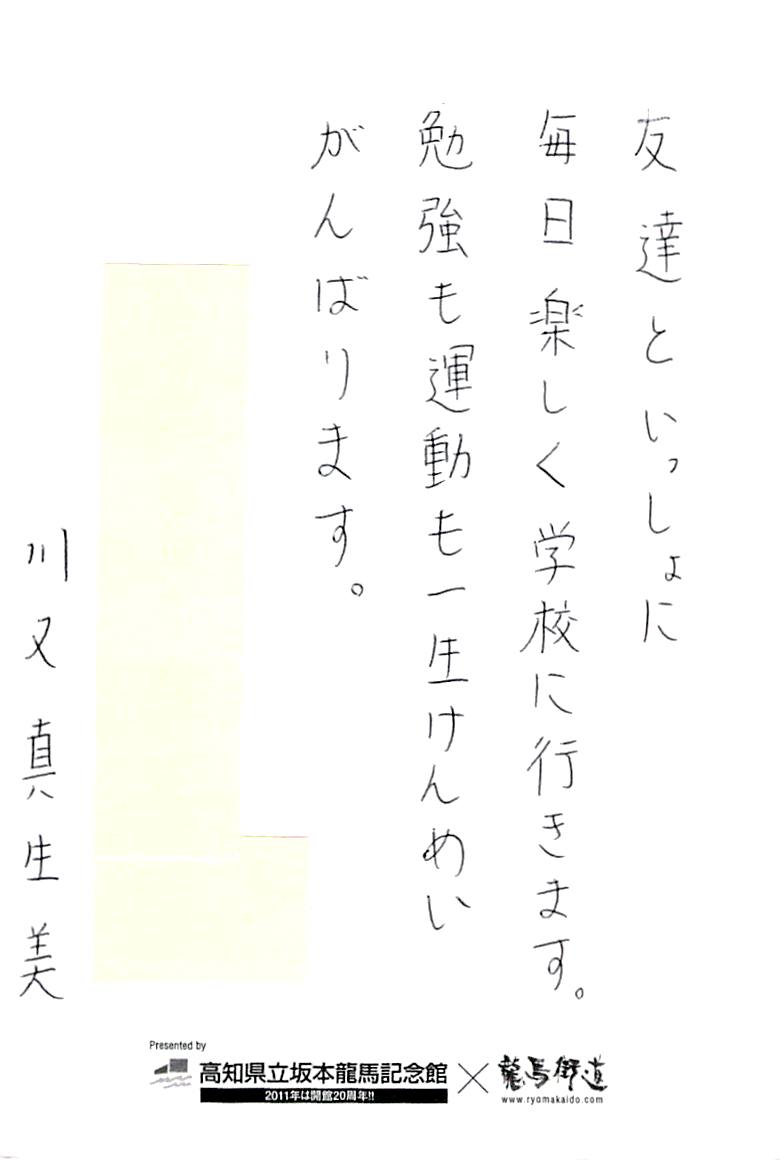 友達といっしょに
毎日楽しく学校に行きます。
勉強も運動も一生けんめい
がんばります。
川又真生美
Presented by
高知県立坂本龍馬記念館
2011年は開館20周年!!
×
龍馬街道
www.ryomakaido.com